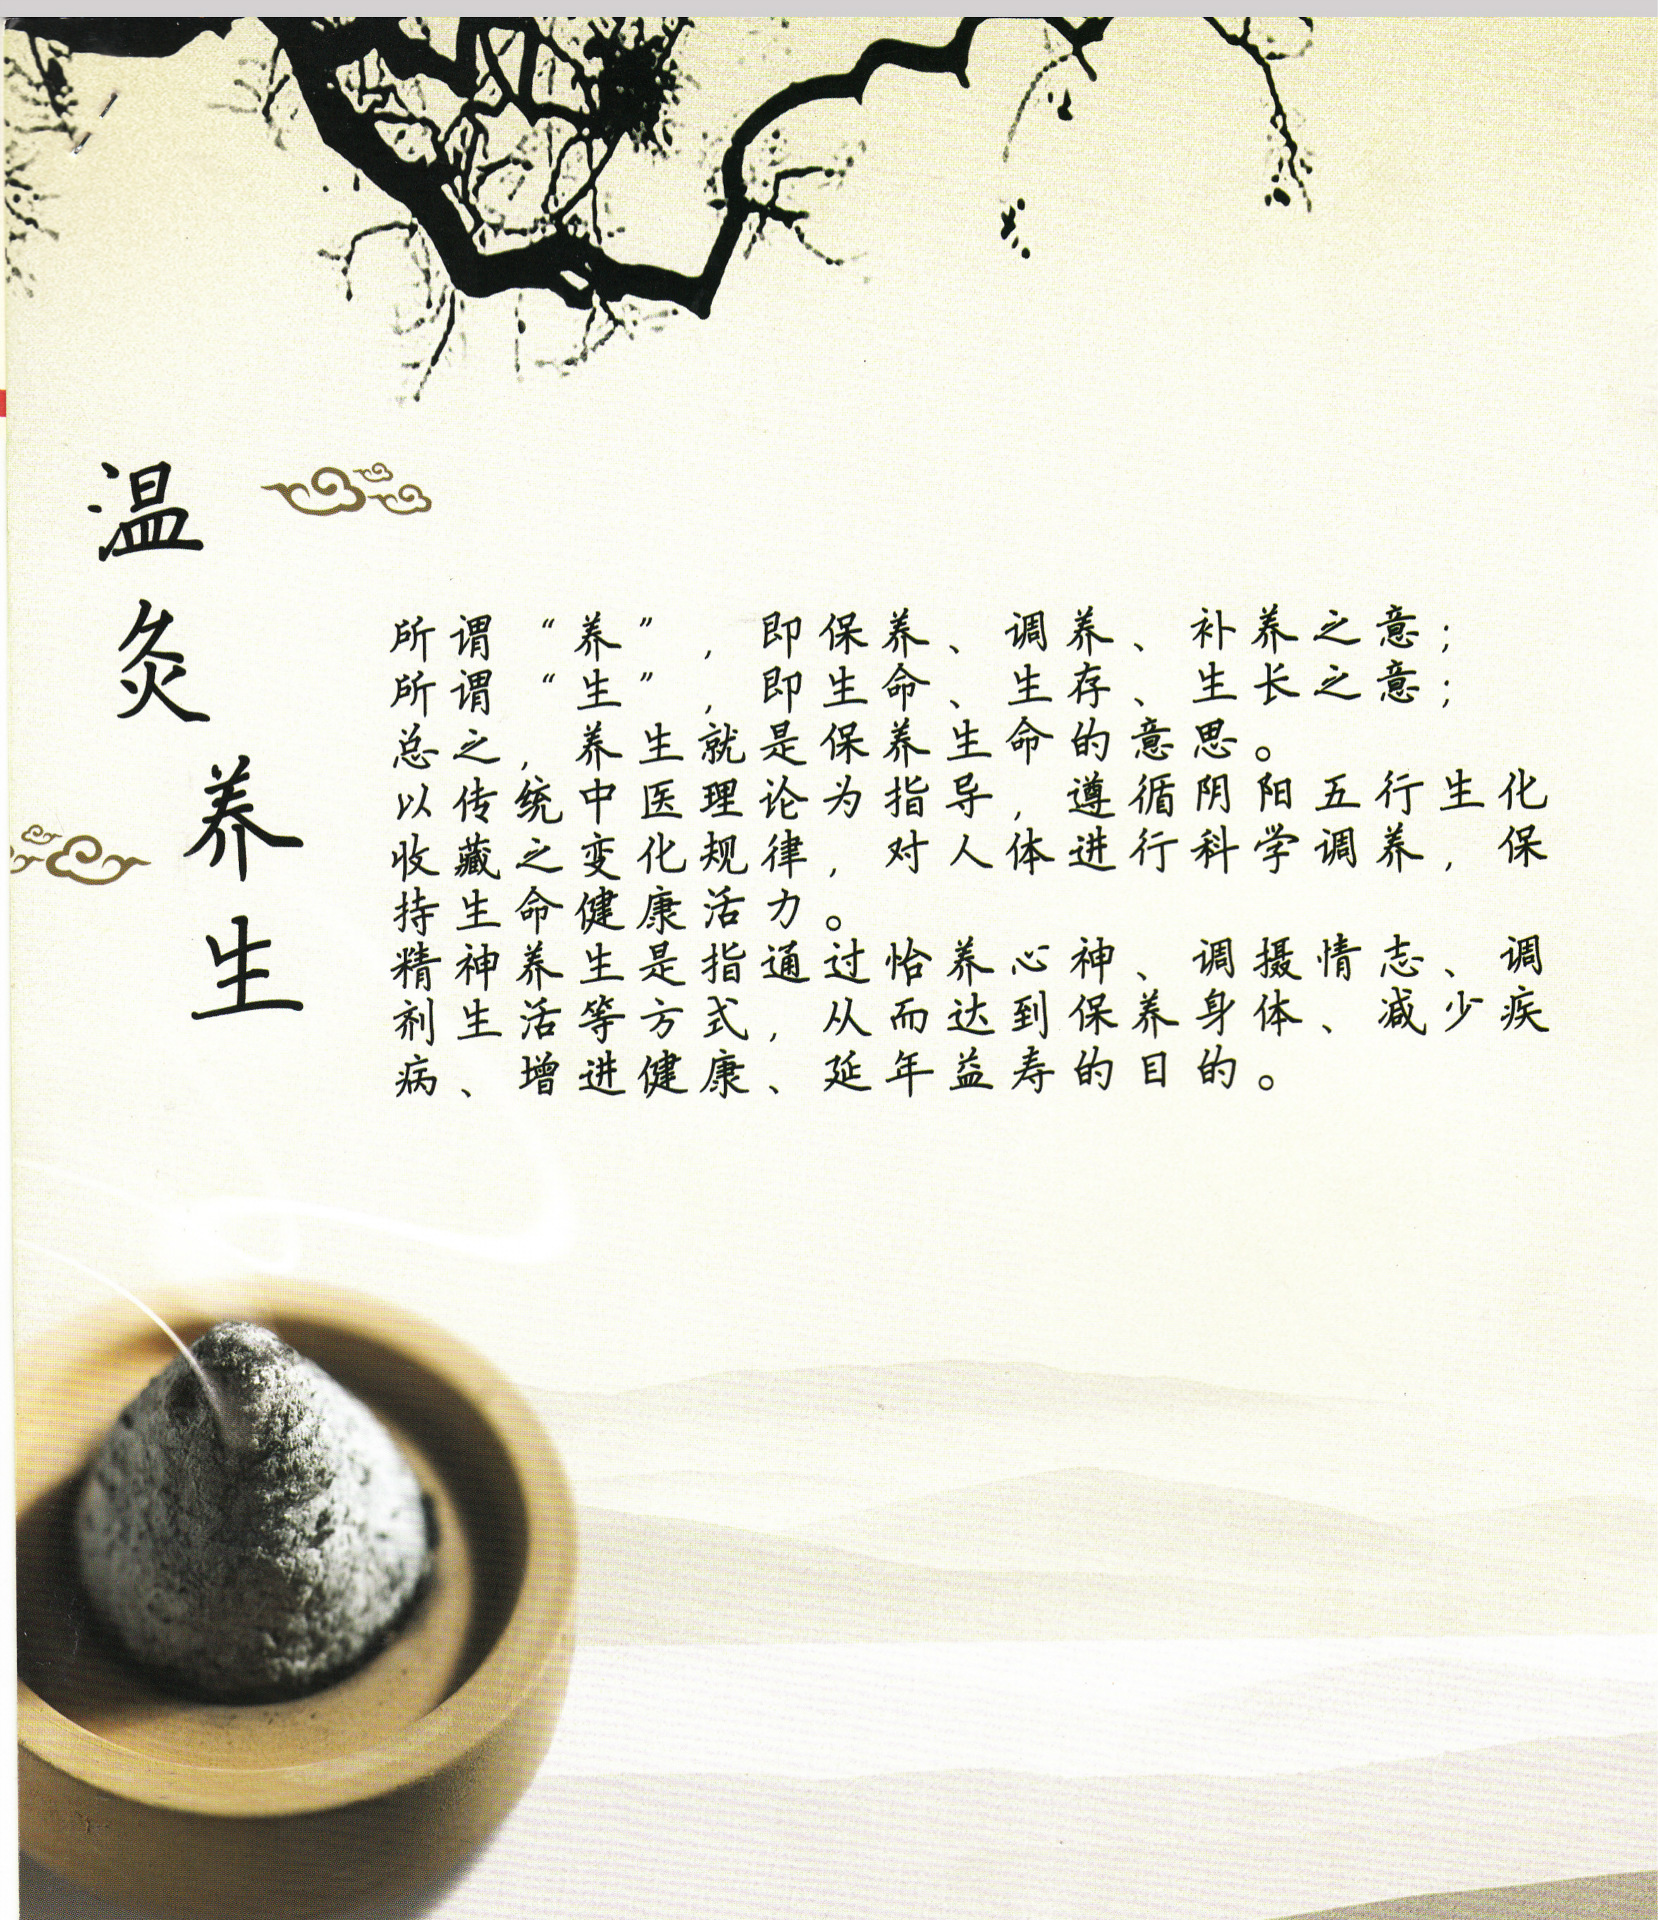 温灸养生
所谓“养”，即保养、调养、补养之意；
所谓“生”，即生命、生存、生长之意；
总之，养生就是保养生命的意思。
以传统中医理论为指导，遵循阴阳五行生化
收藏之变化规律，对人体进行科学调养，保
持生命健康活力。
精神养生是指通过怡养心神、调摄情志、调
剂生活等方式，从而达到保养身体、减少疾
病、增进健康、延年益寿的目的。